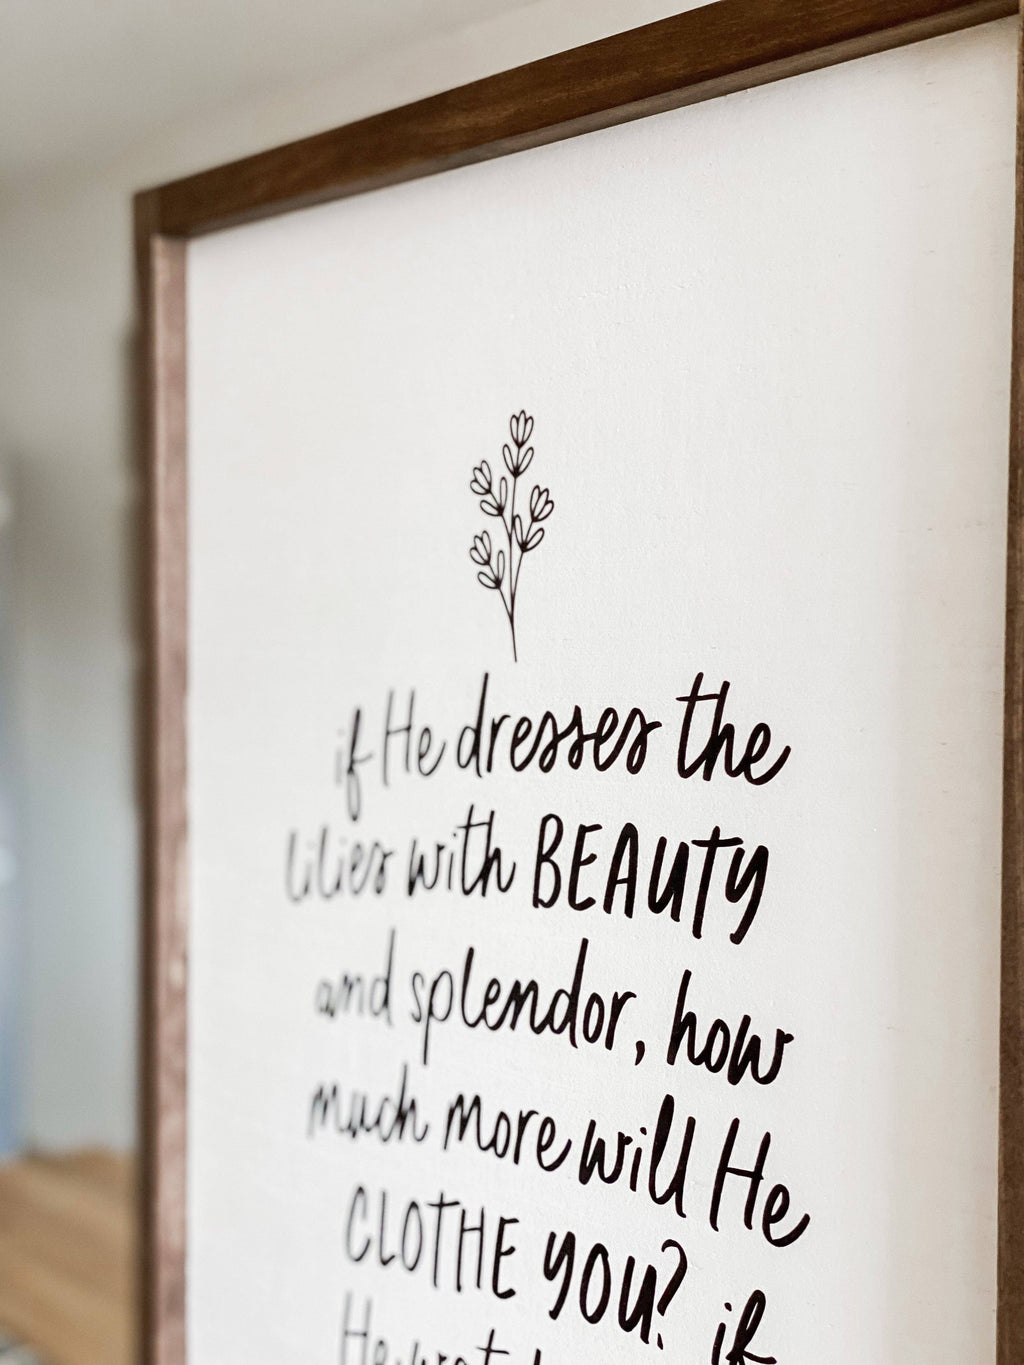 if He dresses the
lilies with BEAUTY
and splendor, how
much more will He
CLOTHE YOU? if
He